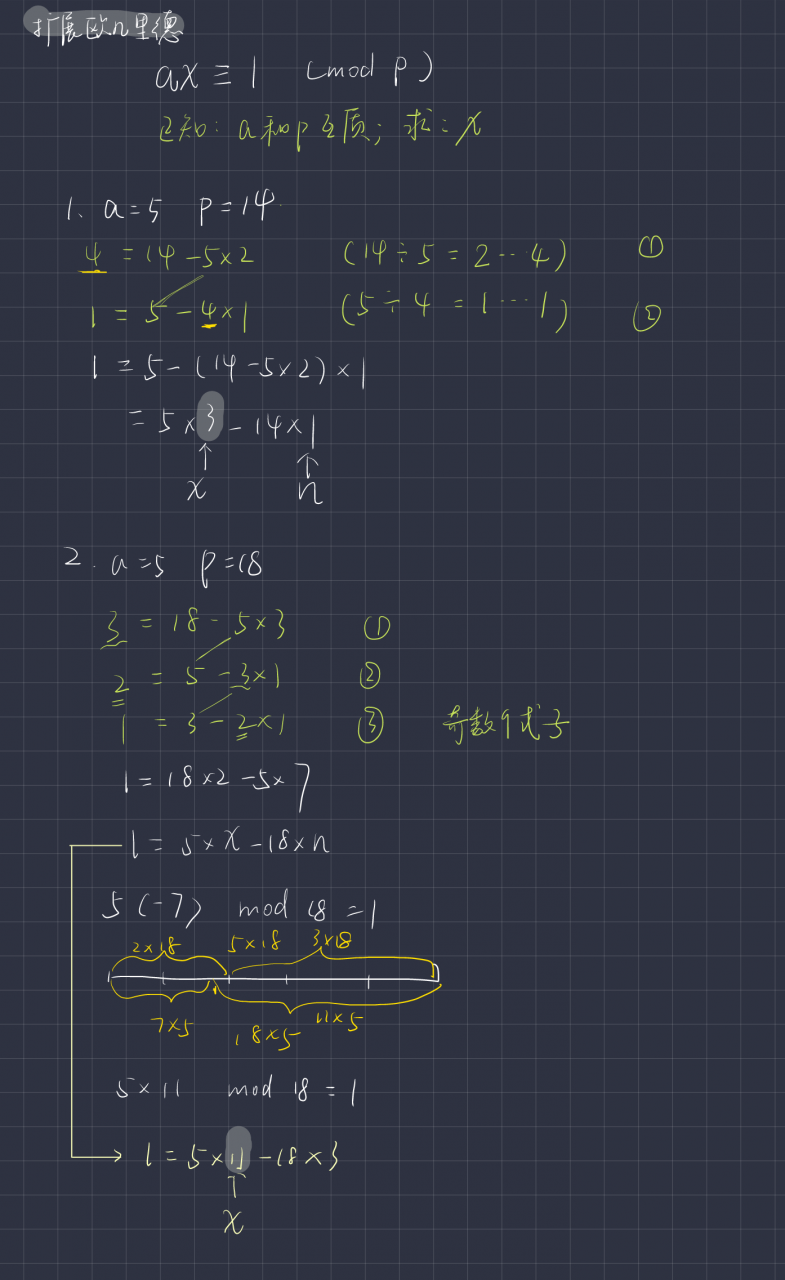 扩展欧几里德
ax ≡ 1 (mod p)
已知: a和p互质; 求: x
1、a=5 p=14
4 = 14 - 5×2 (14÷5 = 2…4) ①
1 = 5 - 4×1 (5÷4 = 1…1) ②
1 = 5 - (14 - 5×2) × 1
= 5 × 3 - 14 × 1
x n
2. a=5 p=18
3 = 18 - 5×3 ①
2 = 5 - 3×1 ②
1 = 3 - 2×1 ③ 奇数个式子
1 = 18×2 - 5×7
1 = 5×x - 18×n
5(-7) mod 18 = 1
2×18 5×18 3×18
7×5 18×5 11×5
5×11 mod 18 = 1
1 = 5×11 - 18×3
x